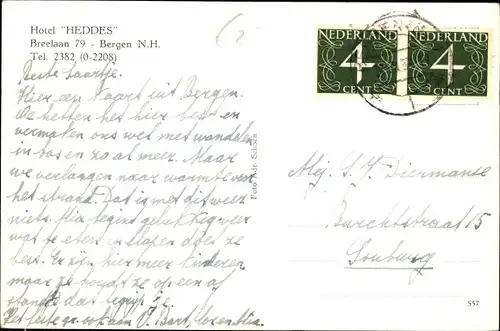 Hotel "HEDDES"
Breelaan 79 - Bergen N.H.
Tel. 2382 (0-2208)
NEDERLAND NEDERLAND
4 4
CENT CENT
Beste Saartje.
Hier een kaart uit Bergen.
We hebben het hier best en
vermaken ons wel met wandelen
in bos en zo al meer. Maar
we verlangen naar warmte voor
het strand. Dat is met dit weer
niets. Mia begint gelukkig weer
wat te eten en slapen doet ze
best. Er zijn hier meer kinderen
maar ze houdt ze op een af
stand dat
Het beste ook aan
Foto Adr. Schoen
Mej. S. J.
15
Souburg
557